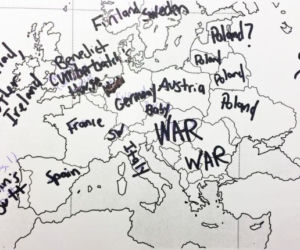 Finland
Sweden
Poland?
Benedict
Cumberbatch's
House
Poland
Poland
Ireland
Germany
Austria
Poland
Baby
France
WAR
Italy
WAR
Spain